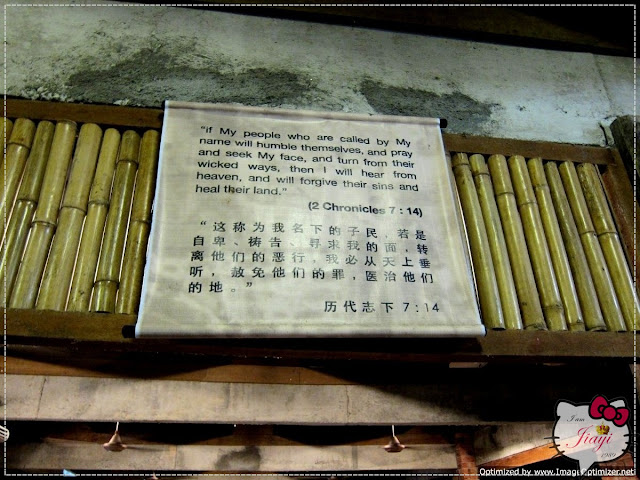 “if My people who are called by My
name will humble themselves, and pray
and seek My face, and turn from their
wicked ways, then I will hear from
heaven, and will forgive their sins and
heal their land.”
(2 Chronicles 7 : 14)
“这称为我名下的子民，若是
自卑、祷告、寻求我的面，转
离他们的恶行，我必从天上垂
听，赦免他们的罪，医治他们
的地。”
历代志下 7 : 14
I am
Jiayi
1989
Optimized by www.ImageOptimizer.net